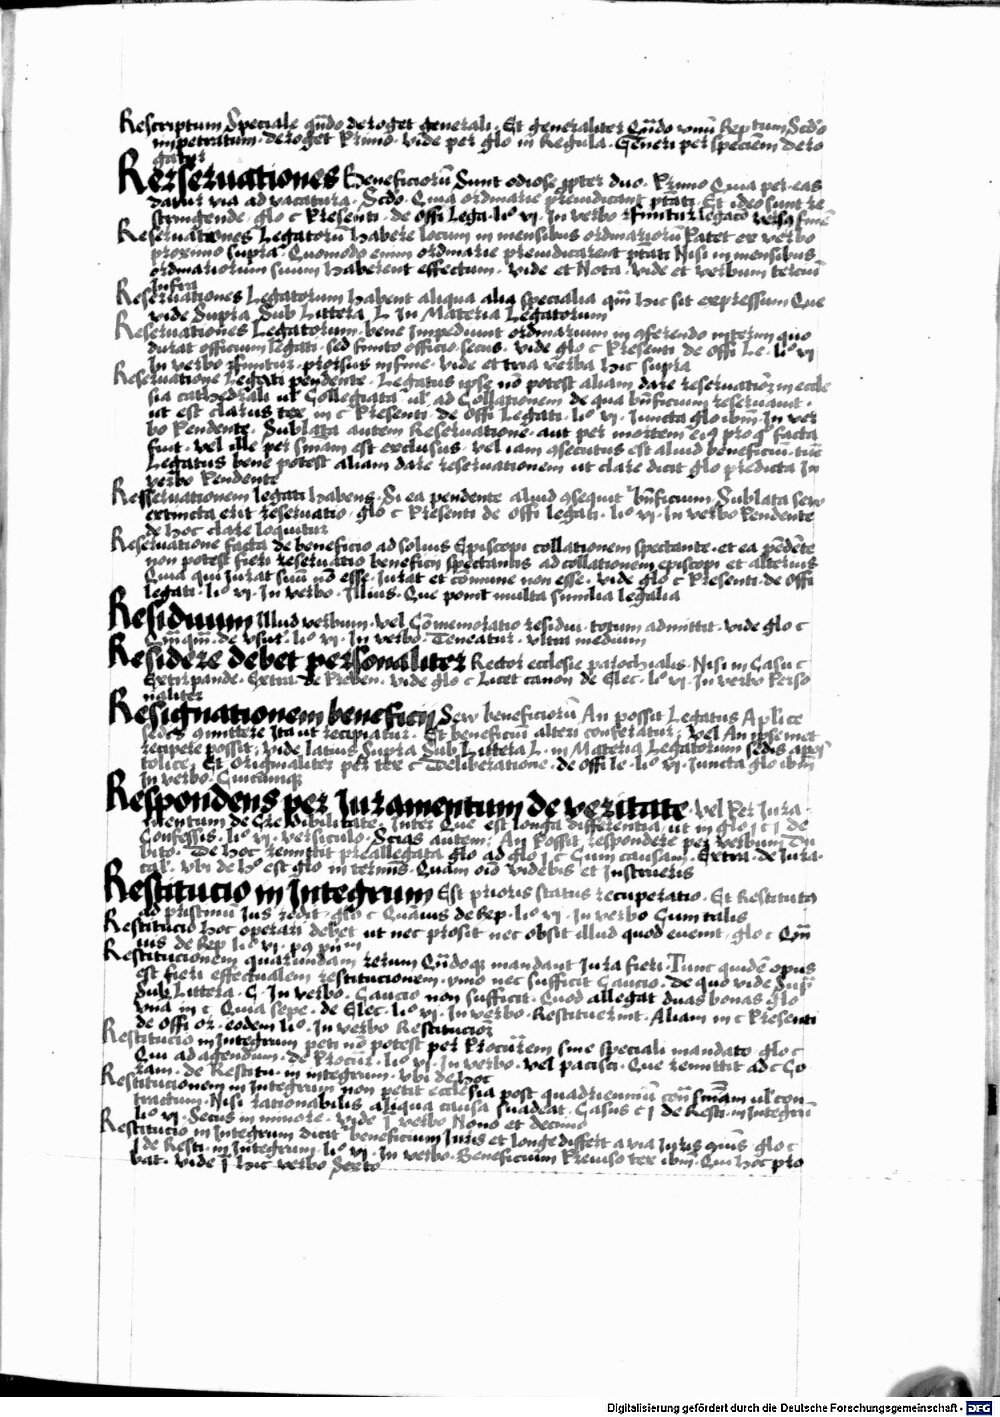 Rescriptum Speciale qn̄do deroget generali. Et generaliter Qn̄do vnū Rep̄tum Scd̄o
impetratum. deroget Primo. vide per glo in Regula. Generi per speciem dero
gatur
Rerseruationes Beneficiorū Sunt odiose p̱pter duo. Primo Quia per eas
datur via ad vacatura. Scd̄o. Quia ordinarie preiudicant ptāti. Et ideo sunt re
stringende. glo c Presenti. de offi Lega. li° vi. In verbo
Reseruationes Legatorū habere locum in mensibus ordinariorū Patet ex verbo
proximo supra. Quomodo enim ordinarie preiudicarent ptāti Nisi in mensibus
ordinariorum suum haberent effectum. vide et Nota. vide et verbum terciū
Infra
Reseruationes Legatorum habent aliqua alia specialia qm̄ hic sit expressum Que
vide Supra Sub Littera L In Materia Legatorum
Reseruationes Legatorum. bene Impediunt ordinarium in ꝯferendo interim quo
durat officium legati. sed finito officio secus. vide glo c Presenti de offi Le. li° vi
In verbo finitur. prorsus in fine. vide et tria verba hic supra
Reseruatione Legati pendente. Legatus ipse nō potest aliam dare reseruationē in eccle
sia cathedrali uł Collegiata uł ad Collationem de qua bn̄ficium reseruauit.
ut est clarus tex in c Presenti. de offi Legati. li° vi. Iuncta glo ibm̄. In ver
bo Pendente. Sublata autem Reseruatione. aut per mortem facta
fuit. vel ille per sn̄iam est exclusus. vel iam ꝯsecutus est aliud beneficiū. tūc
Legatus bene potest aliam dare reseruationem ut clare dicit glo predicta In
verbo Pendente
Resseruationem legati habens. Si ea pendente aliud ꝯsequit bn̄ficium. Sublata seu
extincta erit reseruatio. glo c Presenti de offi legati. li° vi. In verbo Pendente
de hoc clare loquitur
Reseruatione facta de beneficio ad solius Episcopi collationem spectante. et ea pēdēte
non potest fieri reseruatio beneficij spectantis ad collationem episcopi et alterius
Quia qui Iurat suū nō esse. Iurat et cōmune non esse. vide glo c Presenti. de offi
legati. li° vi. In verbo. Illius. Que ponit multa similia legalia
Residuum Illud verbum. vel Cōmemoratio residui. totum admittit. vide glo c
Qm̄qm̄. de vsur. li° vi. In verbo. Teneatur. vltra medium
Residere debet personaliter Rector ecclesie parochialis. Nisi in Casu c
Extirpande. Extra. de Preben. vide glo c Licet canon de Elec. li° vi. In verbo Perso
naliter
Resignationem beneficij Seu beneficiorū An possit Legatus Aplice
sedis ꝯmittere Ita ut recipiatur. Et beneficiū alteri conferatur, vel An ipsemet
recipere possit, vide latius Supra Sub Littera L. in Materia Legatorum sedis apos
tolice, Et originaliter per tex c Deliberatione. de offi le. li° vi. Iuncta glo ibm̄
In verbo. Cuicumque
Respondens per Iuramentum de veritate. vel Per Iura.
mentum de Credibilitate. Inter Que est longa differentia, ut in glo j c j de
Confessis. li° vi. versiculo. Scias autem. An Possit respondere per verbum Du
bito. De hoc remittit preallegata glo ad glo j c Cum causam. Extra. de Iura.
cal. vbi de h° est glo in terminis. Quam oīo videbis et Instrueris
Restitucio in Integrum Est prioris status recuperatio. Et Restituta
ad pristinū Ius redit. glo c Quāuis de Rep. li° vi. In verbo Cum talis
Restitucio hoc operari debet ut nec prosit nec obsit illud quod euenit. glo c Qm̄
uis de Rep li° vi.
Restitucionem quarundam rerum Qn̄doque mandant Iura fieri. Tunc quidē opus
est fieri effectualem restitucionem. ymo nec sufficit Caucio. de quo vide Supra
Sub Littera. C. In verbo. Caucio non sufficit. Quod allegat duas bonas glo
vna in c Quia sepe. de Elec. li° vi. In verbo. Restituerint. Aliam in c Presenti
de offi or. eodem li°. In verbo Restitucionē
Restitucio in Integrum peti nō potest per Procurem sine speciali mandato. glo c
Qui ad agendum. de Procur. li° vi. In verbo. vel pacisci. Que remittit ad c Co
ram. de Restitu. in integrum. vbi de hoc
Restitucionem in Integrum non petit ecclesia post quadrienniū con̄ sn̄iam uł con
tractum. Nisi rationabilis aliqua causa suadeat. Casus c j de Resti. in Integrū
li° vi. Secus in minore. vide j verbo Nono et decimo
Restitucio in Integrum dicit beneficium Iuris et longe differt a via Iuris ꝯmūis. glo c
j de Resti. in Integrum. li° vi. In verbo. Beneficium Premiso tex ibm̄. Qui hoc pro
bat. vide j hic verbo Sexto
Digitalisierung gefördert durch die Deutsche Forschungsgemeinschaft - DFG